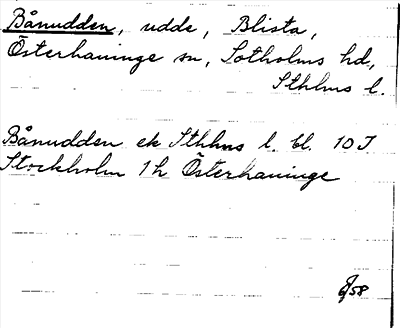 Bånudden, udde, Blista,
Österhaninge sn, Sotholms hd,
Sthlms l.
Bånudden ek Sthlms l. bl. 10 J
Stockholm 1 h Österhaninge
58